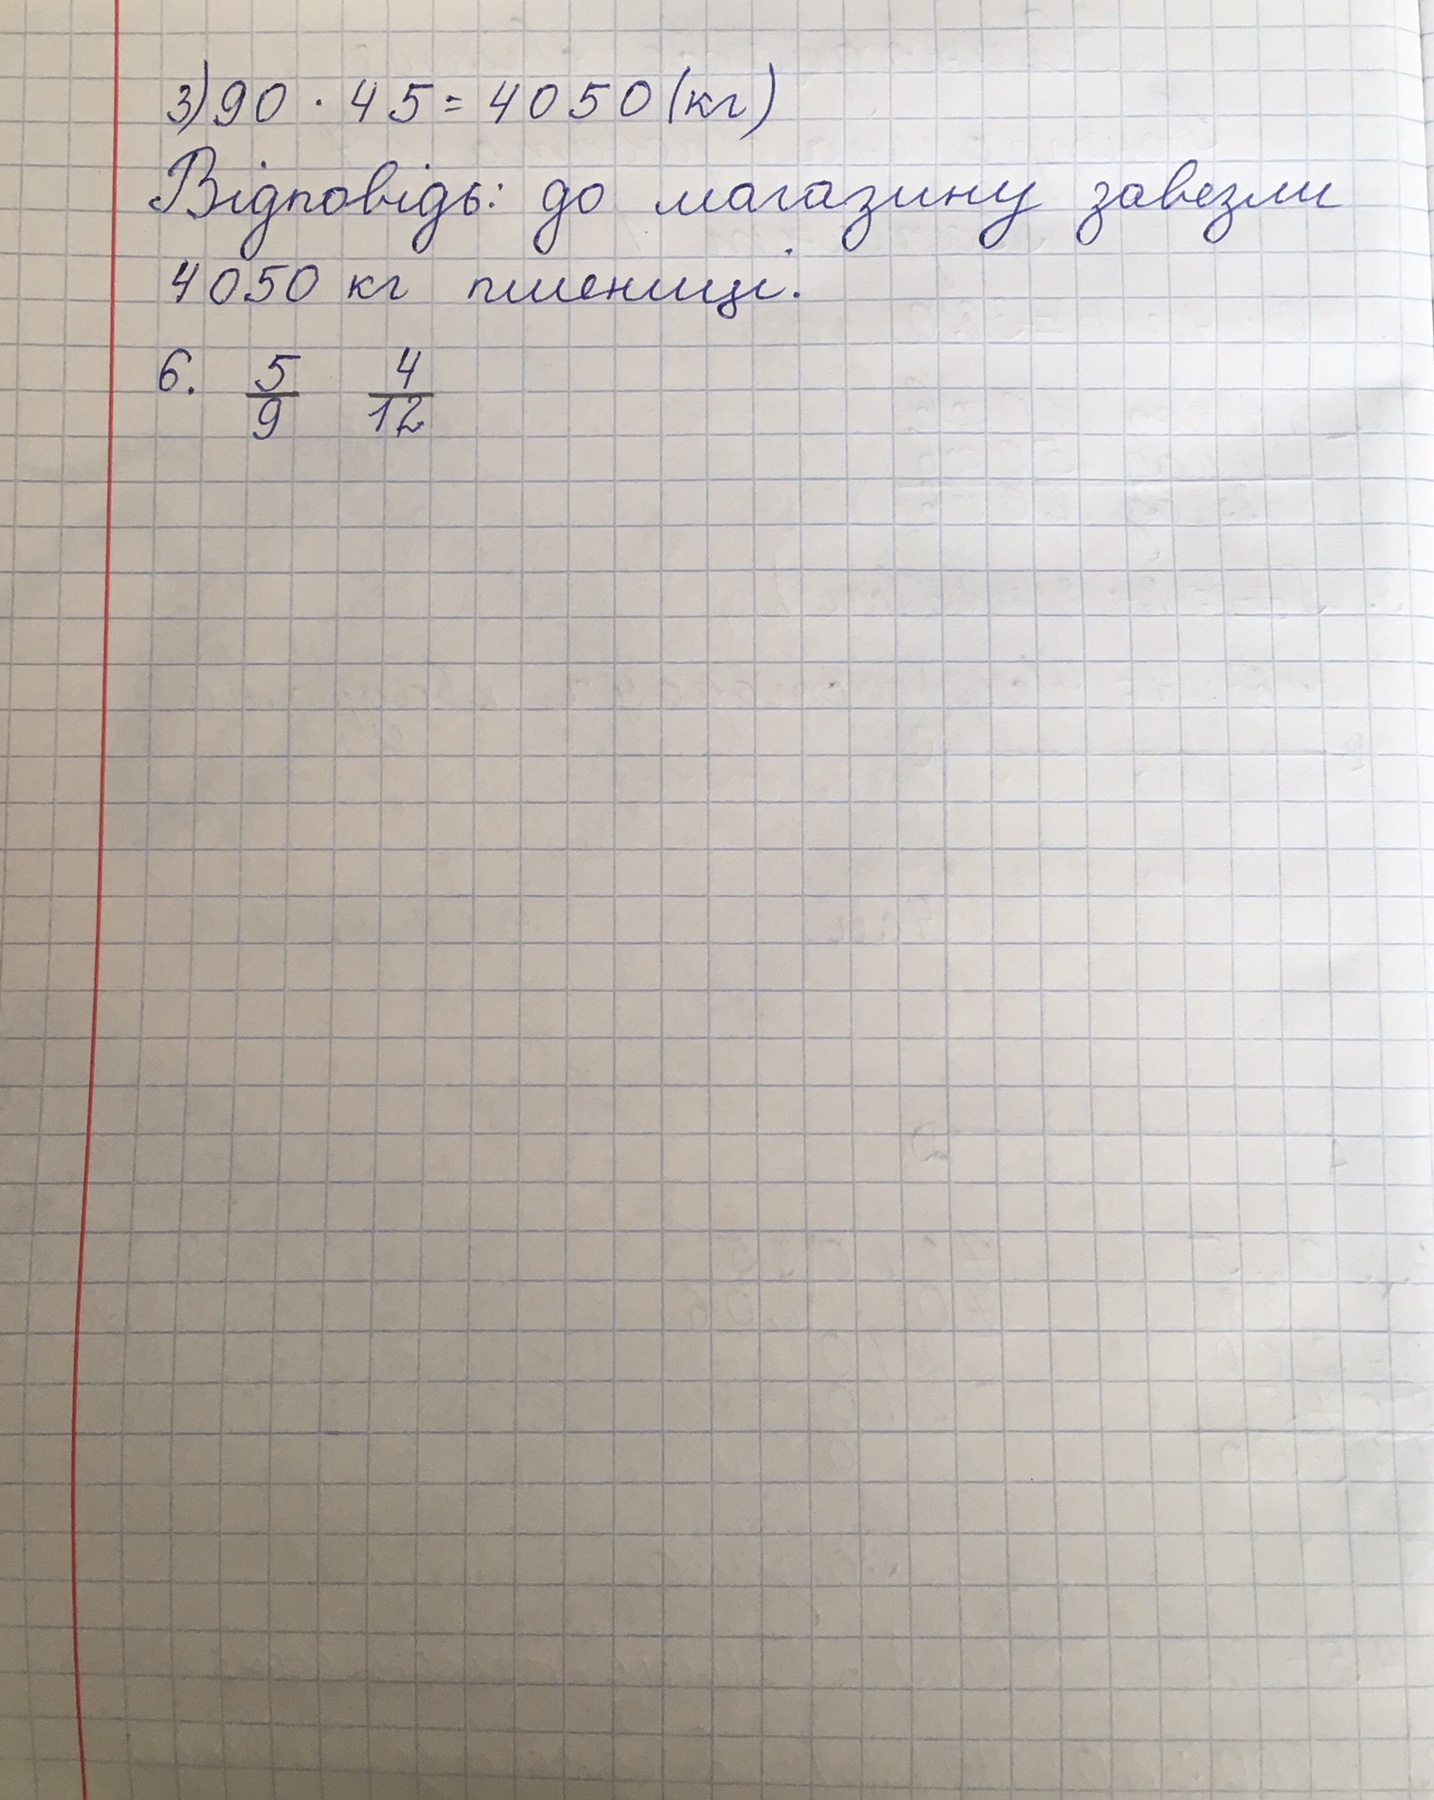 3) 90 · 45 = 4050 (кг)
Відповідь: до магазину завезли
4050 кг пшениці.
6. 5/9 4/12